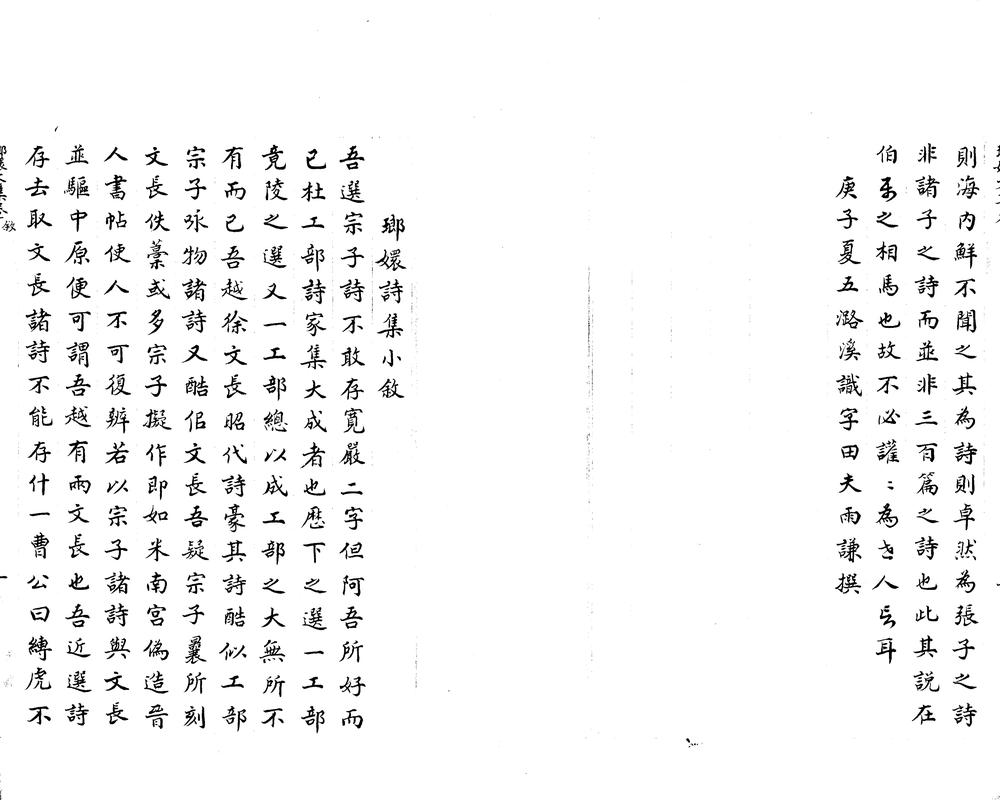 則海内鮮不聞之其為詩則卓然為張子之詩
非諸子之詩而並非三百篇之詩也此其説在
伯之相馬也故不必讙〻為世人言耳
庚子夏五潞溪識字田夫雨謙撰
瑯嬛詩集小敘
吾選宗子詩不敢存寬嚴二字但阿吾所好而
已杜工部詩家集大成者也歴下之選一工部
竟陵之選又一工部總以成工部之大無所不
有而已吾越徐文長昭代詩豪其詩酷似工部
宗子咏物諸詩又酷佀文長吾疑宗子曩所刻
文長佚藁或多宗子擬作即如米南宫偽造晉
人書帖使人不可復辨若以宗子諸詩與文長
並驅中原便可謂吾越有兩文長也吾近選詩
存去取文長諸詩不能存什一曹公曰縛虎不